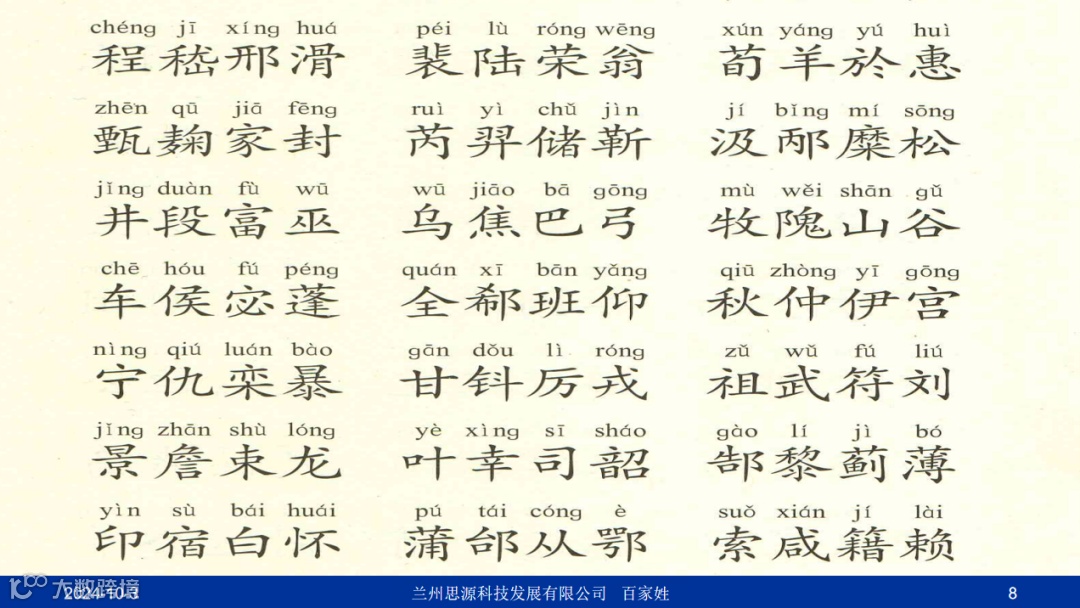 chéng jī xíng huá péi lù róng wēng xún yáng yú huì
程嵇邢滑 裴陆荣翁 荀羊於惠
zhēn qū jiā fēng ruì yì chǔ jìn jí bǐng mí sōng
甄麹家封 芮羿储靳 汲邴糜松
jǐng duàn fù wū wū jiāo bā gōng mù wěi shān gǔ
井段富巫 乌焦巴弓 牧隗山谷
chē hóu fú péng quán xī bān yǎng qiū zhòng yī gōng
车侯宓蓬 全郗班仰 秋仲伊宫
nìng qiú luán bào gān dǒu lì róng zǔ wǔ fú liú
宁仇栾暴 甘钭厉戎 祖武符刘
jǐng zhān shù lóng yè xìng sī sháo gào lí jì bó
景詹束龙 叶幸司韶 郜黎蓟薄
yìn sù bái huái pú tái cóng è suǒ xián jí lài
印宿白怀 蒲邰从鄂 索咸籍赖
大数跨境
2024-10-3 兰州思源科技发展有限公司 百家姓 8